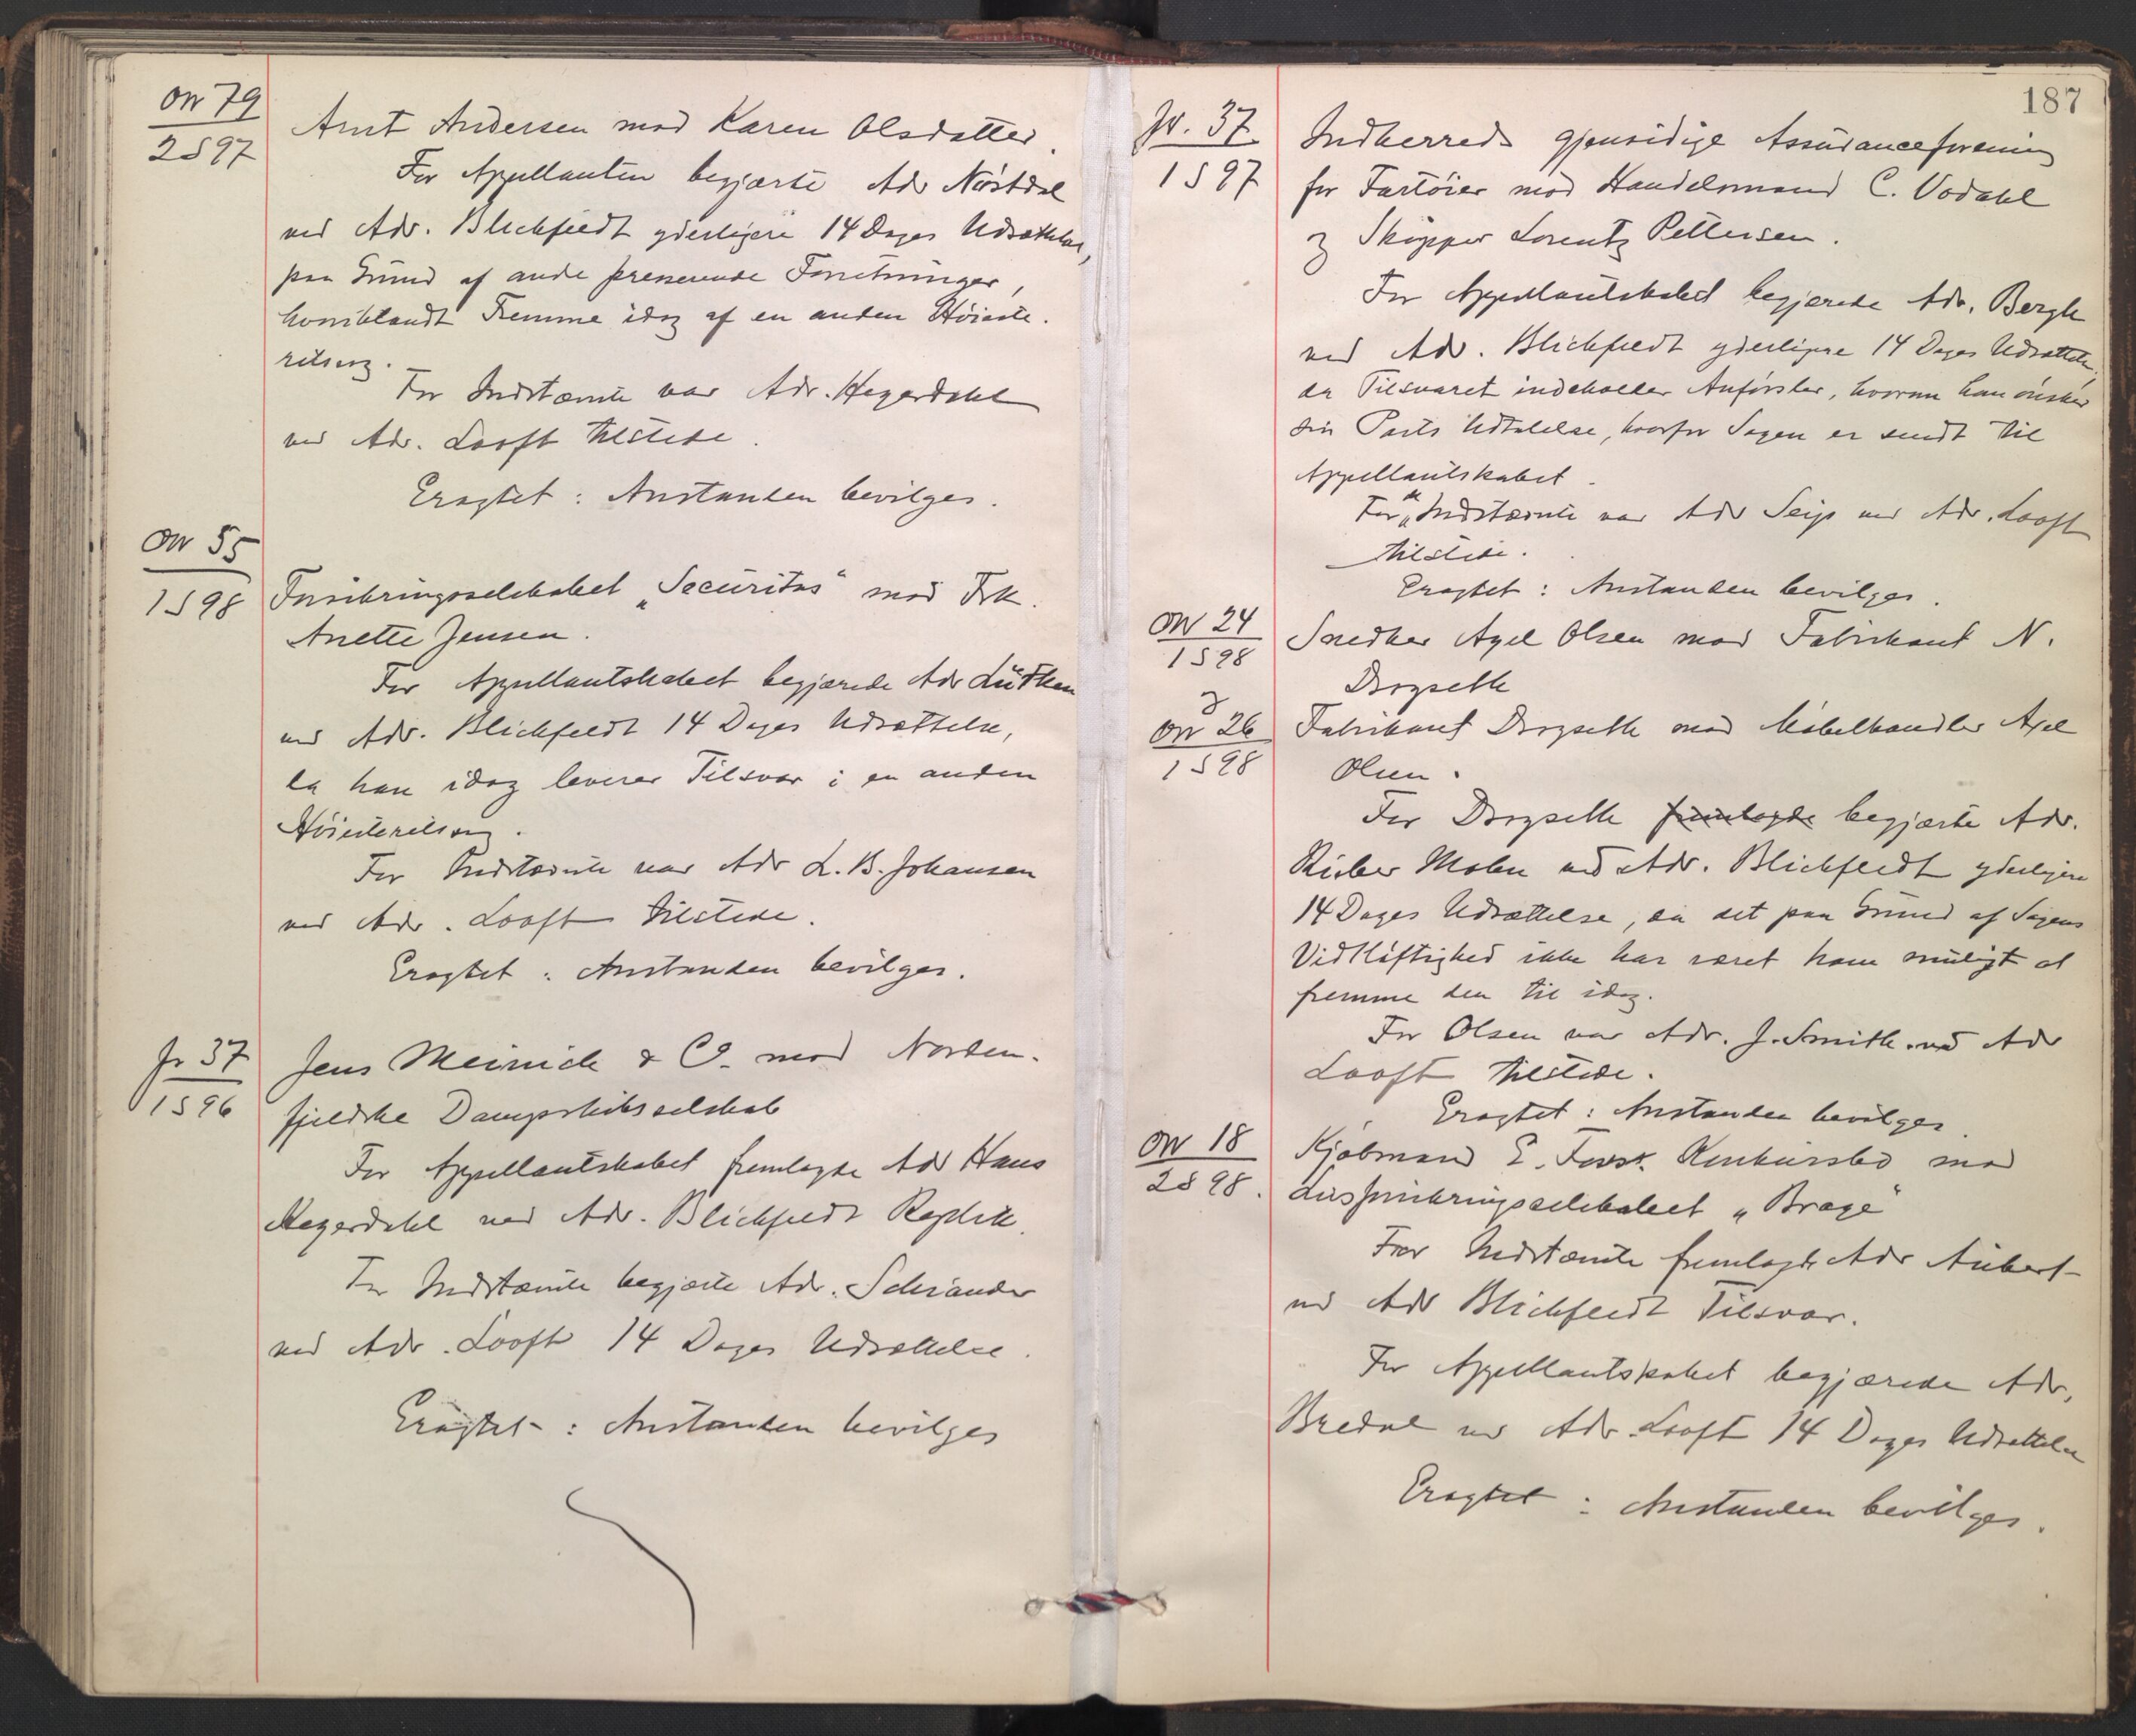 No 79
2 S 97
Arnt Andersen mod Karen Olsdatter.
For Appellanten begjærte Adv Nørstdal
ved Adv. Blichfeldt yderligere 14 Dages Udsættelse,
paa Grund af andre presserende Forretninger,
hvoriblandt Fremme idag af en anden Høieste-
retssag.
For Indstævnte var Adv. Hagerdahl
ved Adv. Looft tilstede.
Eragtet: Anstanden bevilges.
No 55
1 S 98
Forsikringsselskabet „Securitas" mod Frk.
Anette Jensen.
For Appellantskabet begjærede Adv Lütken
ved Adv. Blichfeldt 14 Dages Udsættelse,
da han idag leverer Tilsvar i en anden
Høiesteretssag.
For Indstævnte var Adv L. B. Johansen
ved Adv. Looft tilstede.
Eragtet: Anstanden bevilges.
Jr 37
1 S 96
Jens Meinich & Co. mod Norden-
fjeldske Dampskibsselskab
For Appellantskabet fremlagde Adv Hans
Hagerdahl ved Adv. Blichfeldt Replik.
For Indstævnte begjærte Adv. Schiander
ved Adv. Looft 14 Dages Udsættelse.
Eragtet: Anstanden bevilges
187
Jr. 37
1 S 97
Indherreds gjensidige Assuranceforening
for Fartøier mod Handelsmand C. Vodahl
og Skipper Lorentz Pettersen.
For Appellantskabet begjærede Adv. Bergh
ved Adv. Blichfeldt yderligere 14 Dages Udsættelse,
da Tilsvaret indeholder Anførsler, hvorom han ønsker
sin Parts Udtalelse, hvorfor Sagen er sendt til
Appellantskabet.
For de Indstævnte var Adv Seip ved Adv. Looft
tilstede.
Eragtet: Anstanden bevilges.
No 24
1 S 98
Snedker Axel Olsen mod Fabrikant N.
Drogseth
og
No 26
1 S 98
Fabrikant Drogseth mod Møbelhandler Axel
Olsen.
For Drogseth fremlagde begjærte Adv.
Rieber Mohn ved Adv. Blichfeldt yderligere
14 Dages Udsættelse, da det paa Grund af Sagens
Vidtløftighed ikke har været ham muligt at
fremme den til idag.
For Olsen var Adv. J. Smith ved Adv
Looft tilstede.
Eragtet: Anstanden bevilges.
No 18
2 S 98.
Kjøbmand E. Foss. Konkursbo mod
Livsforsikringsselskabet „Brage"
For Indstævnte fremlagde Adv Aubert
ved Adv Blichfeldt Tilsvar.
For Appellantskabet begjærede Adv.
Bredal ved Adv. Looft 14 Dages Udsættelse
Eragtet: Anstanden bevilges.